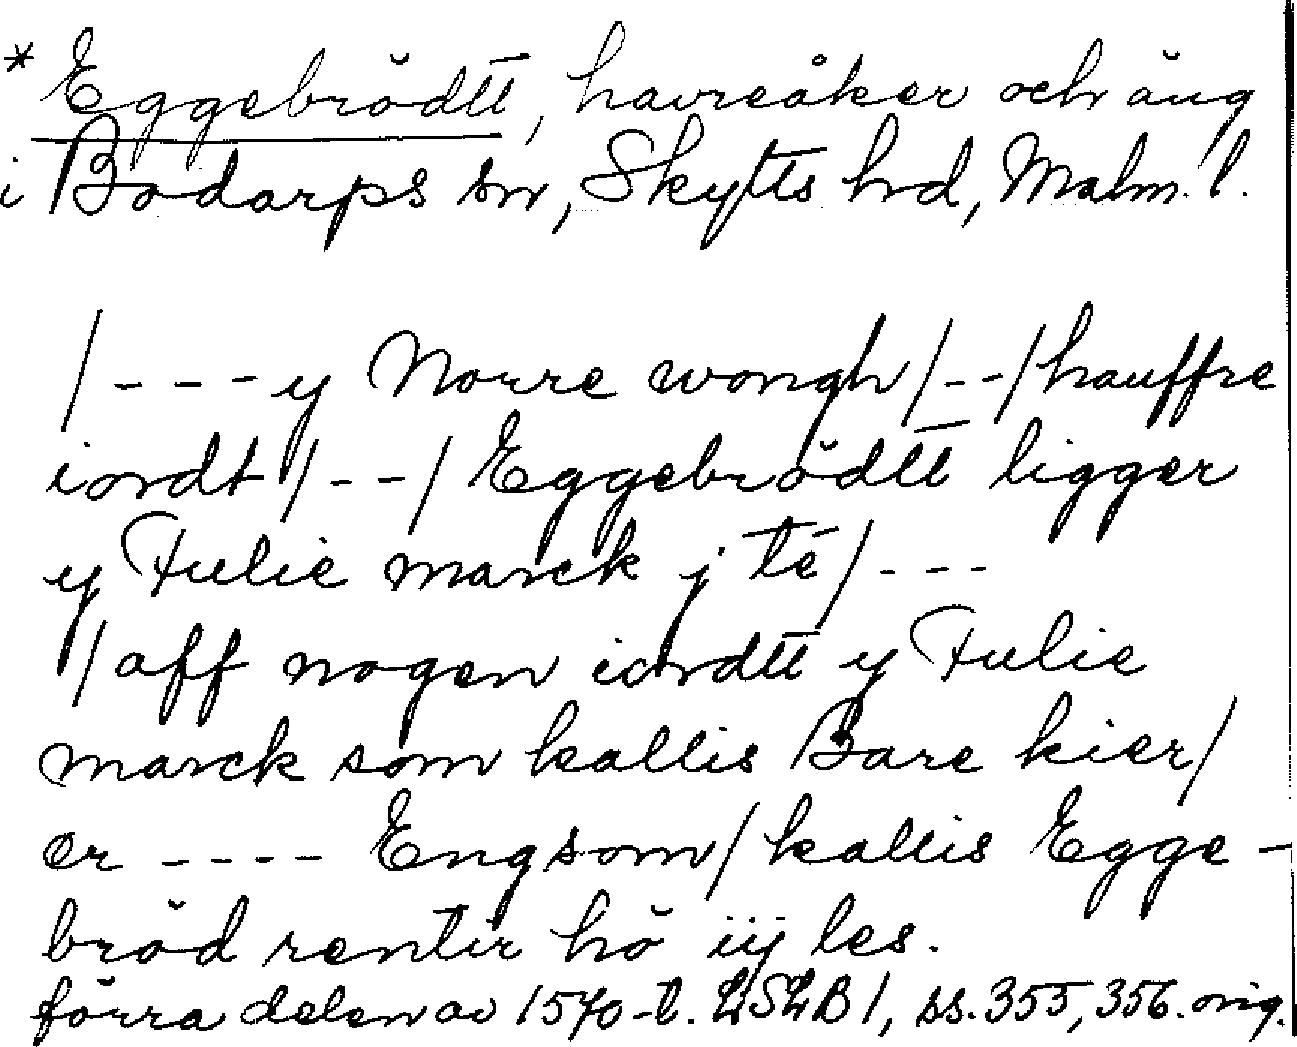 * Eggebrödtt, havreåker och äng
i Bodarps sn, Skytts hd, Malm. l.
/---y Norre wongh/--/hauffre
iordt/--/Eggebrödtt ligger
y Fulie marck j té/---
/aff nogen iordtt y Fulie
marck som kallis Bare kier/
er ---- Eng som/kallis Egge-
bröd rentir hö iij les.
förra delen av 1570-t. LSLB 1, ss. 355, 356. orig.